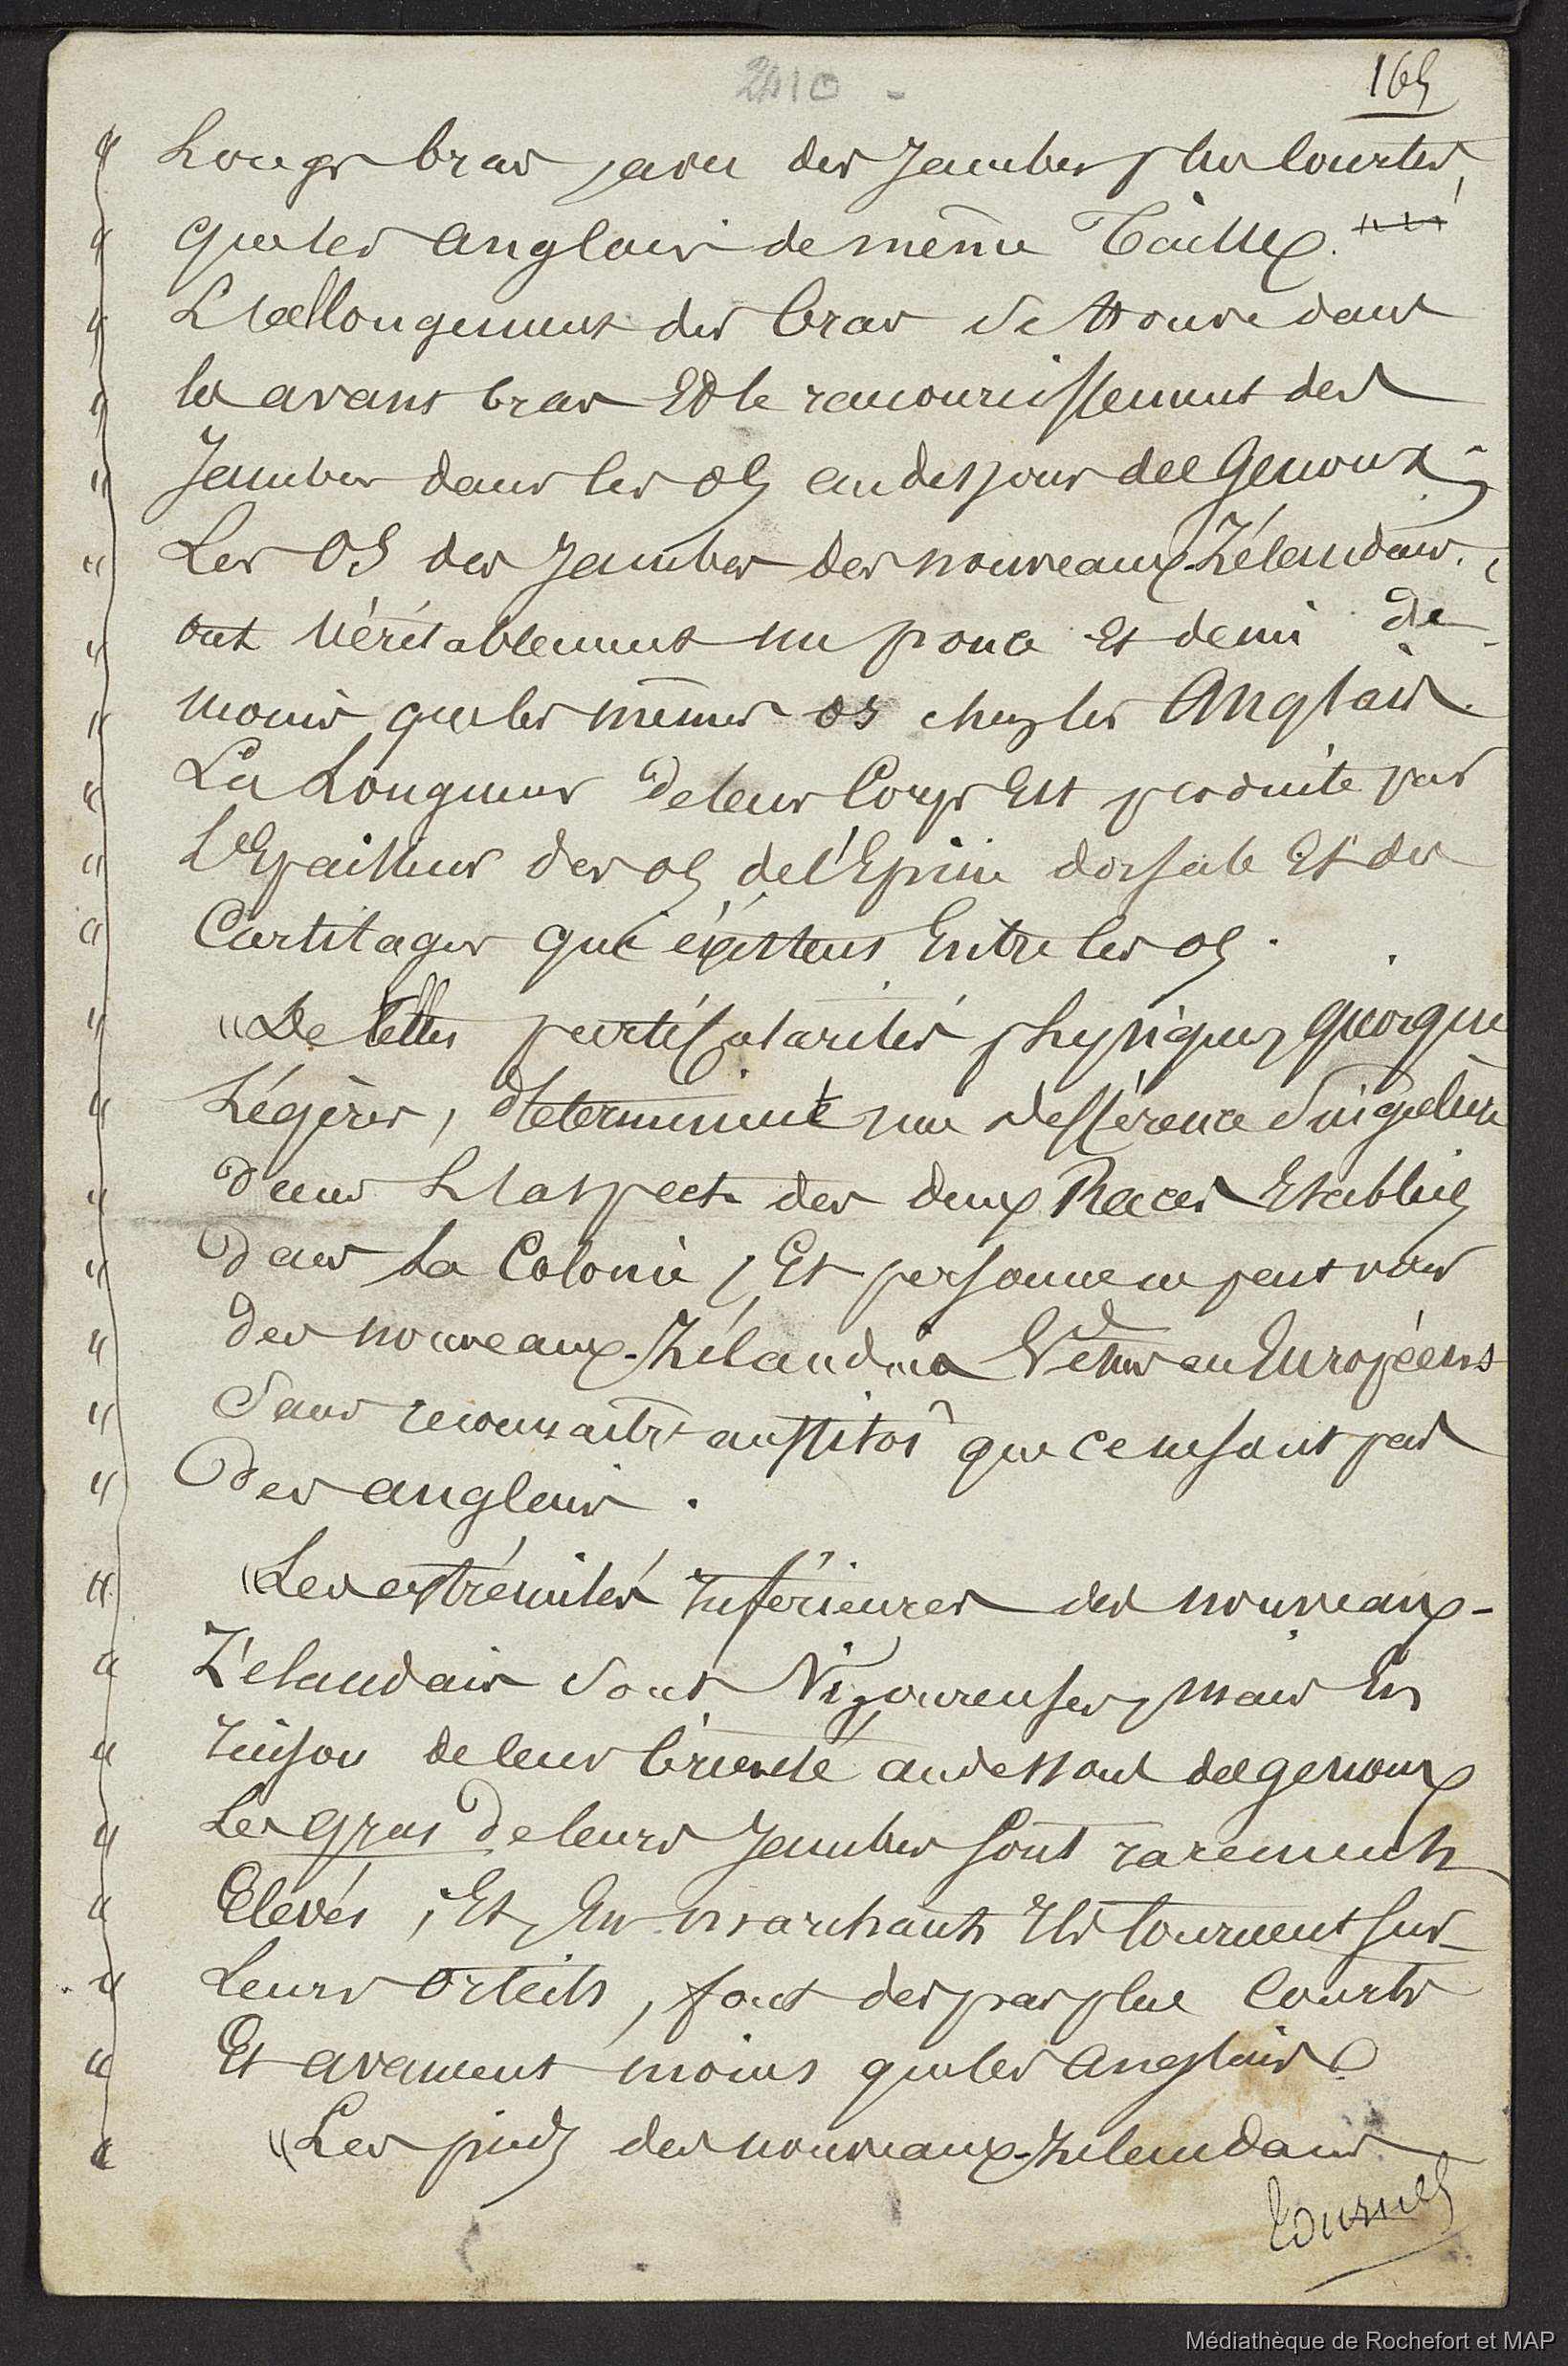 2410 -
165
" Longs bras, avec des Jambes plus Courtes,
" que les anglais de même Taille.
" L'allongement des bras se trouve dans
" les avant bras Et le raccourcissement des
" Jambes dans les os au dessous des Genoux ;
" Les OS des Jambes des nouveaux-Zélandais,
" ont véritablement un pouce Et demi de
" moins que les mêmes os chez les Anglais.
" La Longueur de leur Corps Est produite par
" L'Epaisseur des os de l'Epine dorsale Et des
" Cartilages qui éxistent Entre les os.
" "De telles particularités physiques, quoique
" Légères, déterminent une différence Singulière
" dans L'aspect des deux Races Etablies
" dans La Colonie, Et personne ne peut voir
" des nouveaux-Zélandais Vêtus en Européens
" Sans reconnaître aussitôt que ce ne sont pas
" Des anglais.
" "Les extrémités Inférieures des nouveaux-
" Zélandais Sont Vigoureuses, mais En
" raison de leur briéveté au dessous des genoux
" Les gras de leurs Jambes sont rarement
" Elevés ; Et, En marchant Ils tournent sur
" Leurs Orteils, font des pas plus Courts
" Et avancent moins que les Anglais
" "Les pieds des nouveaux-Zélandais
Tournez
Médiathèque de Rochefort et MAP